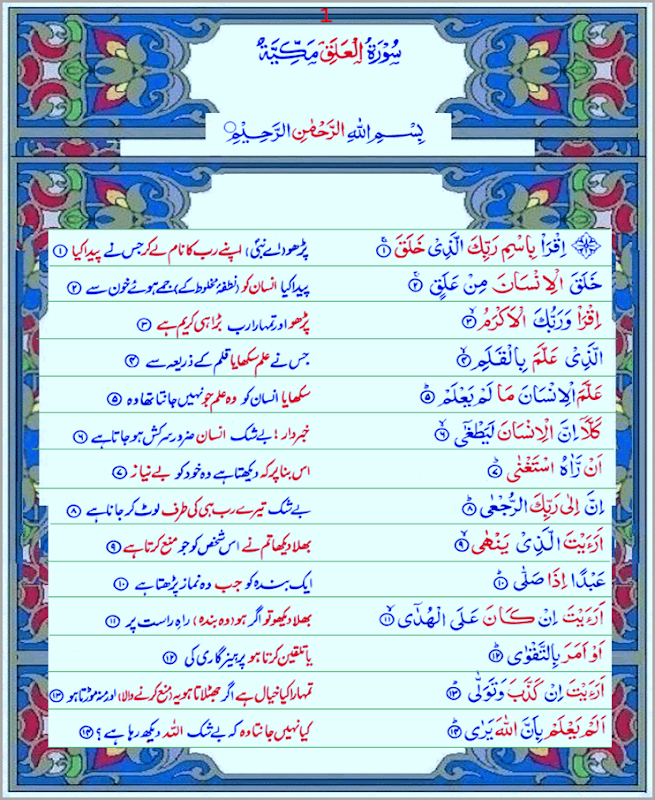 1
سُوۡرَةُ الۡعَلَقِ مَكِّیَّةٌ
بِسۡمِ اللهِ الرَّحۡمٰنِ الرَّحِیۡمِ
اِقۡرَاۡ بِاسۡمِ رَبِّكَ الَّذِیۡ خَلَقَ ۚ‏ ﴿۱﴾ پڑھو (اے نبیؐ) اپنے رب کا نام لے کر جس نے پیدا کیا ﴿۱﴾
خَلَقَ الۡاِنۡسَانَ مِنۡ عَلَقٍ ۚ ﴿۲﴾ پیدا کیا انسان کو (نطفۂ مخلوط کے) جمے ہوئے خون سے ﴿۲﴾
اِقۡرَاۡ وَرَبُّكَ الۡاَكۡرَمُ ۙ ﴿۳﴾ پڑھو اور تمہارا رب بڑا ہی کریم ہے ﴿۳﴾
الَّذِیۡ عَلَّمَ بِالۡقَلَمِ ۙ ﴿۴﴾ جس نے علم سکھایا قلم کے ذریعہ سے ﴿۴﴾
عَلَّمَ الۡاِنۡسَانَ مَا لَمۡ یَعۡلَمۡ ؕ ﴿۵﴾ سکھایا انسان کو وہ علم جو نہیں جانتا تھا وہ ﴿۵﴾
كَلَّاۤ اِنَّ الۡاِنۡسَانَ لَیَطۡغٰٓی ۙ ﴿۶﴾ خبردار! بے شک انسان ضرور سرکش ہو جاتا ہے ﴿۶﴾
اَنۡ رَّاٰهُ اسۡتَغۡنٰی ؕ ﴿۷﴾ اس بنا پر کہ دیکھتا ہے وہ خود کو بے نیاز ﴿۷﴾
اِنَّ اِلٰی رَبِّكَ الرُّجۡعٰی ؕ ﴿۸﴾ بے شک تیرے رب ہی کی طرف لوٹ کر جانا ہے ﴿۸﴾
اَرَءَیۡتَ الَّذِیۡ یَنۡهٰی ۙ ﴿۹﴾ بھلا دیکھا تم نے اس شخص کو جو منع کرتا ہے ﴿۹﴾
عَبۡدًا اِذَا صَلّٰی ؕ ﴿۱۰﴾ ایک بندہ کو جب وہ نماز پڑھتا ہے ﴿۱۰﴾
اَرَءَیۡتَ اِنۡ كَانَ عَلَی الۡهُدٰٓی ۙ ﴿۱۱﴾ بھلا دیکھو تو اگر ہو (وہ بندہ) راہِ راست پر ﴿۱۱﴾
اَوۡ اَمَرَ بِالتَّقۡوٰی ؕ ﴿۱۲﴾ یا تلقین کرتا ہو پرہیزگاری کی ﴿۱۲﴾
اَرَءَیۡتَ اِنۡ كَذَّبَ وَتَوَلّٰی ؕ ﴿۱۳﴾ تمہارا کیا خیال ہے اگر جھٹلاتا ہو یہ (منع کرنے والا) اور منہ موڑتا ہو ﴿۱۳﴾
اَلَمۡ یَعۡلَمۡ بِاَنَّ اللهَ یَرٰی ؕ ﴿۱۴﴾ کیا نہیں جانتا وہ کہ بے شک اللہ دیکھ رہا ہے؟ ﴿۱۴﴾